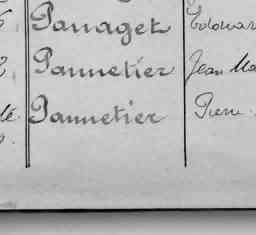 Pannaget Edouar
Pannetier Jean Ma
Pannetier Pierre